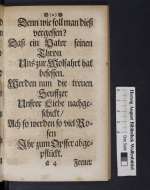 Denn wie soll man dieß
vergessen?
Daß ein Vater seinen
Thron
Uns zur Wolfahrt hat
besessen.
Werden nun die treuen
Seuffzer
Unsrer Liebe nachge-
schickt/
Ach so werden so viel Ro-
sen
Ihr zum Opffer abge-
pflückt.
Ferner
Herzog August Bibliothek Wolfenbüttel